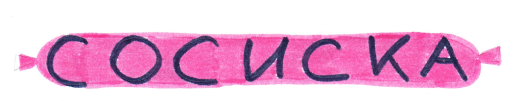 СОСИСКА